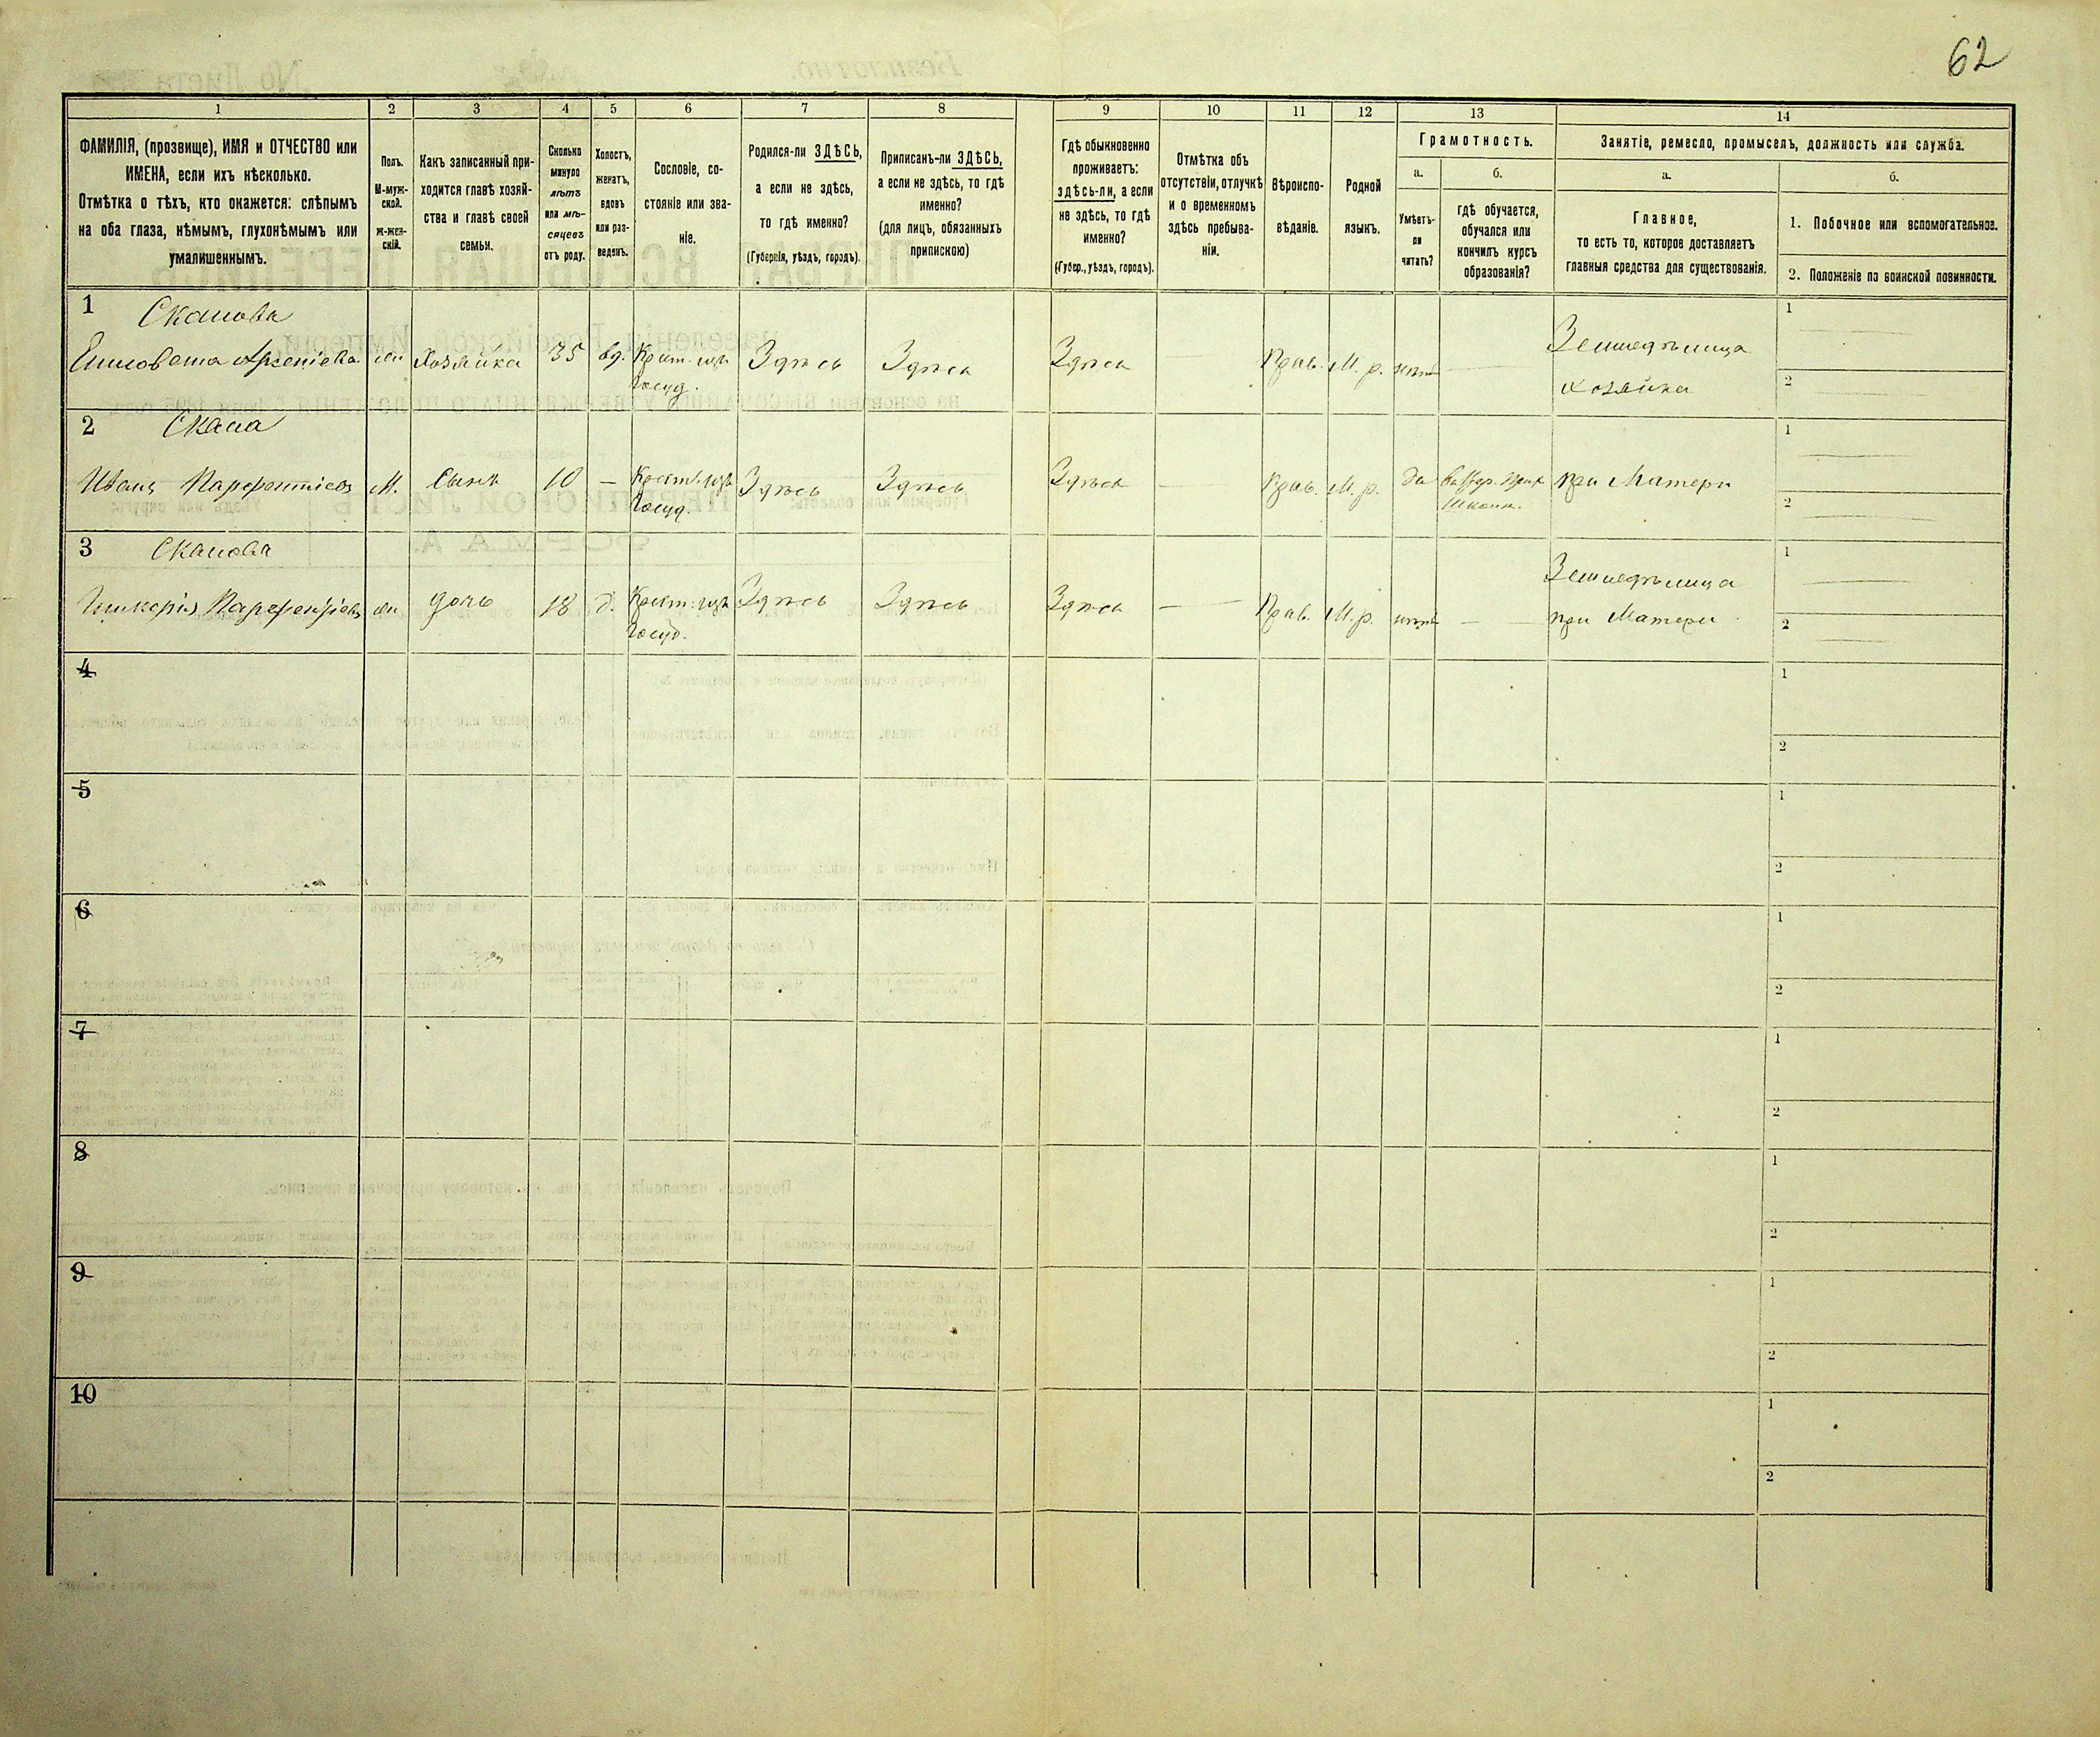 62
1
2
3
4
5
6
7
8
9
10
11
12
13
14
ФАМИЛІЯ, (прозвище), ИМЯ и ОТЧЕСТВО или
ИМЕНА, если ихъ нѣсколько.
Отмѣтка о тѣхъ, кто окажется: слѣпымъ
на оба глаза, нѣмымъ, глухонѣмымъ или
умалишеннымъ.
Полъ.
М-муж-
ской.
ж-жен-
скій.
Какъ записанный при-
ходится главѣ хозяй-
ства и главѣ своей
семьи.
Сколько
минуло
лѣтъ
или мѣ-
сяцевъ
отъ роду.
Холостъ,
женатъ,
вдовъ
или раз-
веденъ.
Сословіе, со-
стояніе или зва-
ніе.
Родился-ли ЗДѢСЬ,
а если не здѣсь,
то гдѣ именно?
(Губернія, уѣздъ, городъ).
Приписанъ-ли ЗДѢСЬ,
а если не здѣсь, то гдѣ
именно?
(для лицъ, обязанныхъ
припискою)
Гдѣ обыкновенно
проживаетъ:
здѣсь-ли, а если
не здѣсь, то гдѣ
именно?
(Губер., уѣздъ, городъ).
Отмѣтка объ
отсутствіи, отлучкѣ
и о временномъ
здѣсь пребыва-
ніи.
Вѣроиспо-
вѣданіе.
Родной
языкъ.
Грамотность.
а.
Умѣетъ-
ли
читать?
б.
гдѣ обучается,
обучался или
кончилъ курсъ
образованія?
Занятіе, ремесло, промыселъ, должность или служба.
а.
Главное,
то есть то, которое доставляетъ
главныя средства для существованія.
б.
1. Побочное или вспомогательное.
2. Положеніе по воинской повинности.
1 Скалова
Елисовета Арсеніева жн Хозяйка 35 вд. Крест. изъ Здѣсь Здѣсь Здѣсь Прав. М. р. нѣтъ — Земледѣлица 1
Госуд. хозяйка 2
2 Скала
Иванъ Парфентіевъ М. Сынъ 10 — Крест. изъ Здѣсь Здѣсь Здѣсь — Прав. М. р. да при Матери 1
Госуд. Школѣ. 2
3 Скалова
Гликерія Парфентіев жн дочь 18 д. Крест. изъ Здѣсь Здѣсь Здѣсь — Прав. М. р. нѣтъ — Земледѣлица 1
Госуд. при Матери 2
4 1
2
5 1
2
6 1
2
7 1
2
8 1
2
9 1
2
10 1
2